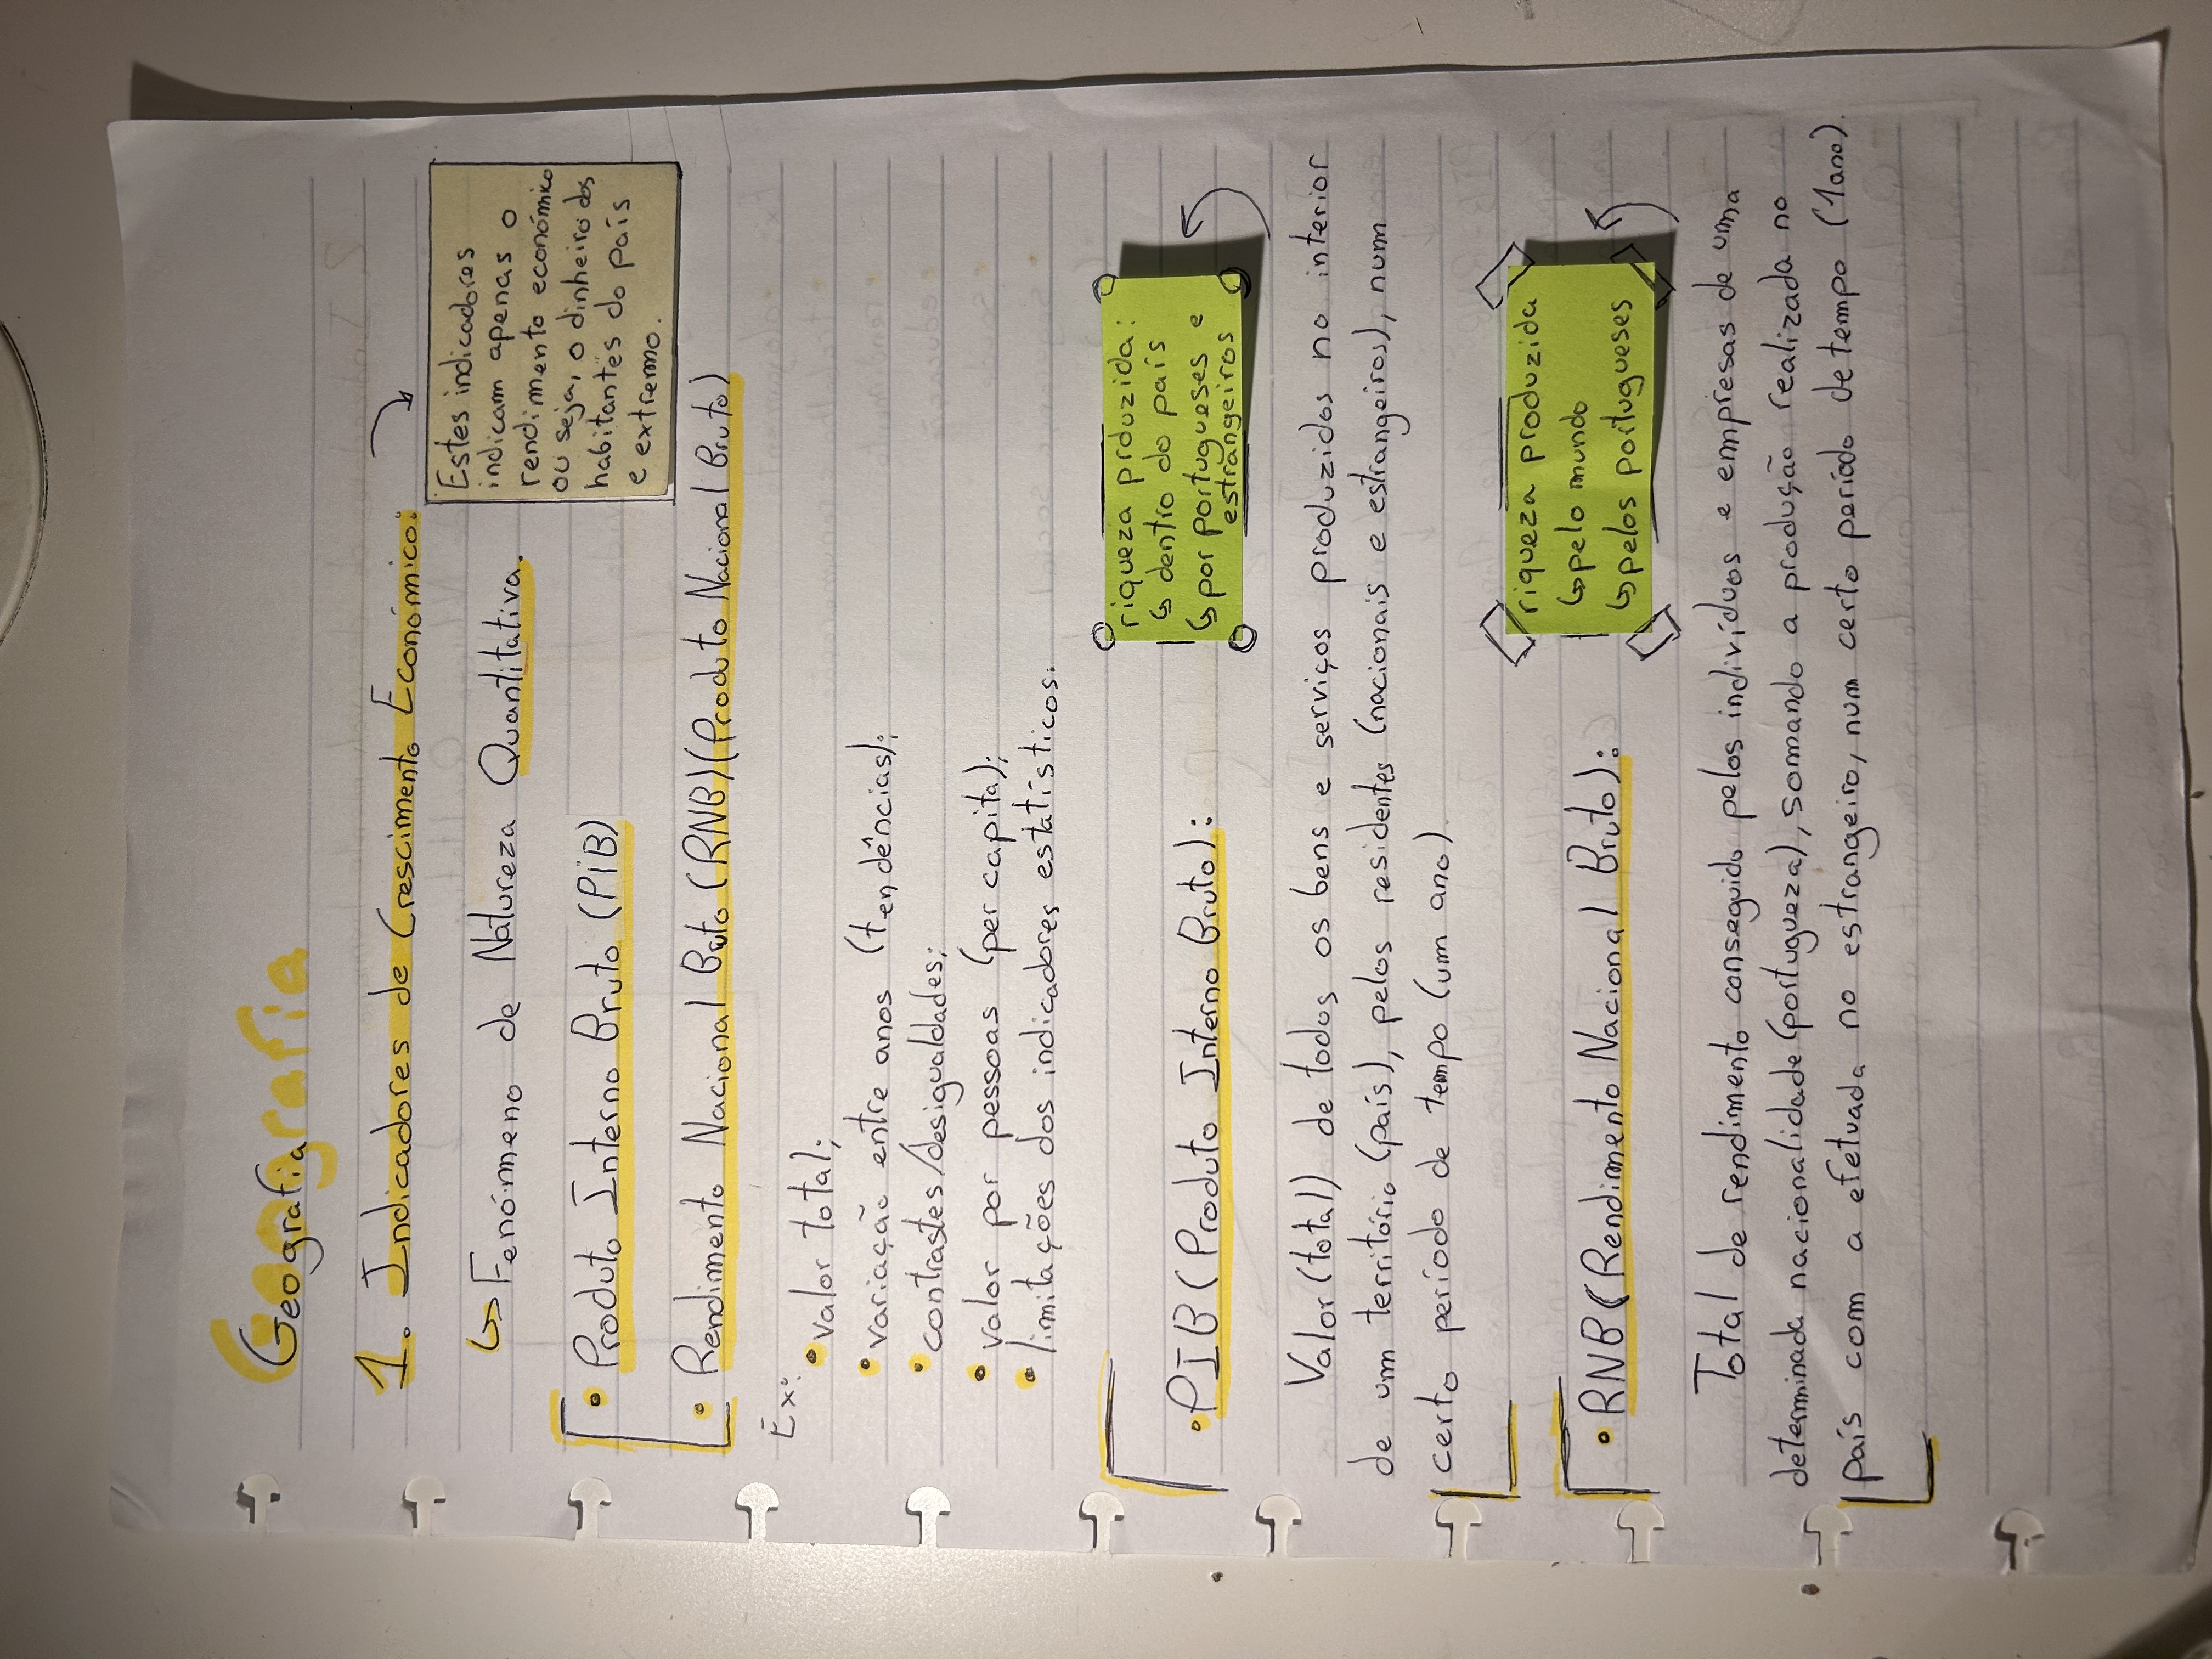 Geografia
1. Indicadores de Crescimento Económico:
Estes indicadores
indicam apenas o
rendimento económico
ou seja, o dinheiro dos
habitantes do país
e extremo.
↳ Fenómeno de Natureza Quantitativa.
• Produto Interno Bruto (PIB)
• Rendimento Nacional Bruto (RNB) (Produto Nacional Bruto)
Ex:
• valor total;
• variação entre anos (tendências);
• contrastes/desigualdades;
• valor por pessoas (per capita);
• limitações dos indicadores estatísticos.
• PIB (Produto Interno Bruto):
riqueza produzida:
↳ dentro do país
↳ por portugueses e
estrangeiros
Valor (total) de todos os bens e serviços produzidos no interior
de um território (país), pelos residentes (nacionais e estrangeiros), num
certo período de tempo (um ano).
• RNB (Rendimento Nacional Bruto):
riqueza produzida
↳ pelo mundo
↳ pelos portugueses
Total de rendimento conseguido pelos indivíduos e empresas de uma
determinada nacionalidade (portugueza), somando a produção realizada no
país com a efetuada no estrangeiro, num certo período de tempo (1 ano).